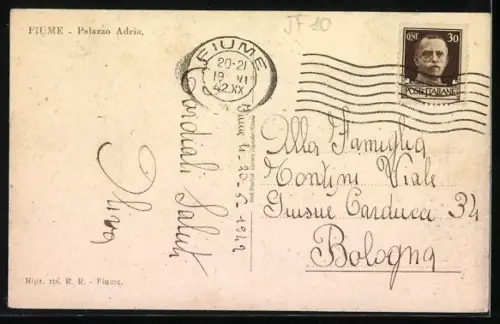 FIUME - Palazzo Adria.
JF 10
FIUME
20-21
19 VI
42.XX
CENT. 30
POSTE ITALIANE
Fiume li 20-6-1942
Cordiali Saluti
Oliva
Alla Famiglia
Contini Viale
Giosue Carducci 34
Bologna
Ripr. ris. R. R. - Fiume.